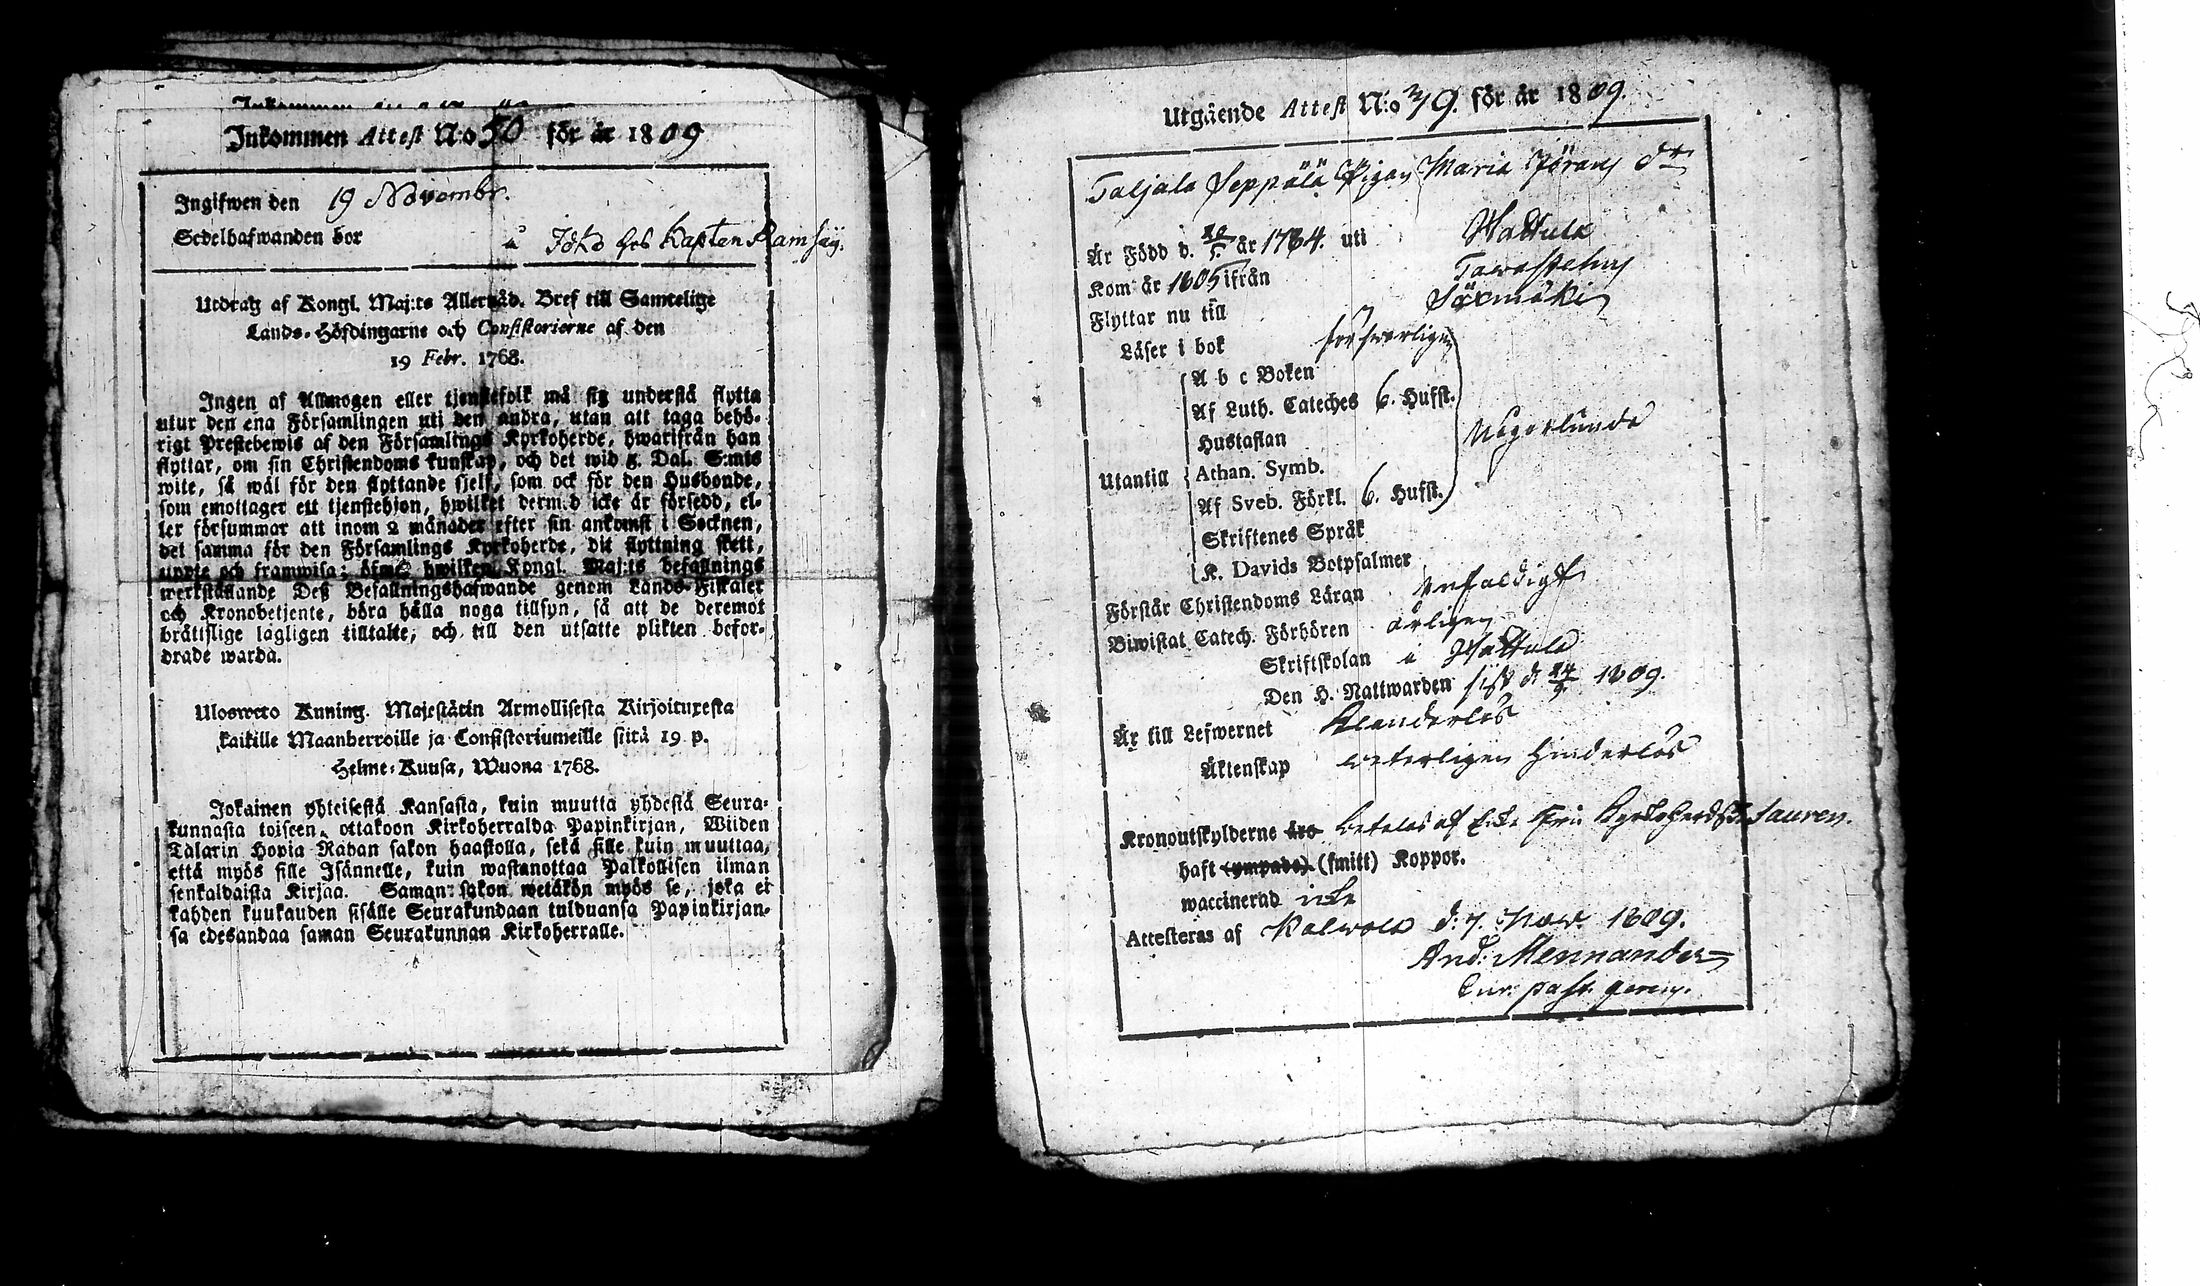 Inkommen Attest N:o 50 för år 1809
Ingifwen den 19 Novembr.
Sedelhafwanden bor å Joko hos Kapten Ramsay.
Utdrag af Kongl. Maj:ts Allernåd. Bref till Samtelige
Lands-Höfdingarne och Consistorierne af den
19 Febr. 1768.
Ingen af Allmogen eller tjenstefolk må sig understå flytta
utur den ena Församlingen uti den andra, utan att taga behö-
rigt Prestebewis af den Församlings Kyrkoherde, hwarifrån han
flyttar, om sin Christendoms kunskap, och det wid 5. Dal. S:mts
wite, så wäl för den flyttande sjelf, som ock för den Husbonde,
som emottager ett tjenstehjon, hwilket derm:d icke är försedd, el-
ler försummar att inom 2 månader efter sin ankomst i Socknen,
det samma för den Församlings Kyrkoherde, dit flyttning skett,
uppte och framwisa; öfwer hwilken Kongl. Maj:ts befallnings
werkställande Deß Befallningshafwande genom Lands-Fiskaler
och Kronobetjente, böra hålla noga tillsyn, så att de deremot
bråttslige lagligen tilltalte, och till den utsatte plikten befor-
drade warda.
Ulosweto Kuning. Majestätin Armollisesta Kirjoituxesta
kaikille Maanherroille ja Consistoriumeille siitä 19 p.
Helme-Kuusa, Wuona 1768.
Jokainen yhteisestä Kansasta, kuin muutta yhdestä Seura-
kunnasta toiseen, ottakoon Kirkoherralda Papinkirjan, Wiiden
Talarin Hopia Rahan sakon haastolla, sekä sille kuin muuttaa,
että myös sille Isännelle, kuin wastanottaa Palkollisen ilman
senkaldaista Kirjaa. Saman sakon wetäkön myös se, joka ei
kahden kuukauden sisälle Seurakundaan tulduansa Papinkirjan-
sa edesandaa saman Seurakunnan Kirkoherralle.
Utgående Attest N:o 79. för år 1809.
Taljala Seppälä Pigan Maria Jörans dr
Är Född d. 20/5 år 1784. uti Hattula
Kom år 1805 ifrån Tawastehus
Flyttar nu till Säxmäki
Läser i bok förswarligen
A b c Boken
Af Luth. Cateches 6. Hufst.
Hustaflan
Utantill Athan. Symb. Någorlunda
Af Sveb. Förkl. 6. Hufst.
Skriftenes Språk
K. Davids Botpsalmer
Förstår Christendoms Läran enfaldigt
Biwistat Catech. Förhören årligen
Skriftskolan i Hattula
Den H. Nattwarden sist d. 24/9 1809.
Är till Lefwernet Klanderlös
Äktenskap weterligen Hinderlös
Kronoutskylderne äro betalas af Kyrkoherdsk. Sauren.
haft (ympade) (smitt) Koppor.
waccinerad icke
Attesteras af Kalwola d: 7. Now. 1809.
And: Mennander
Cur. past. gerens.